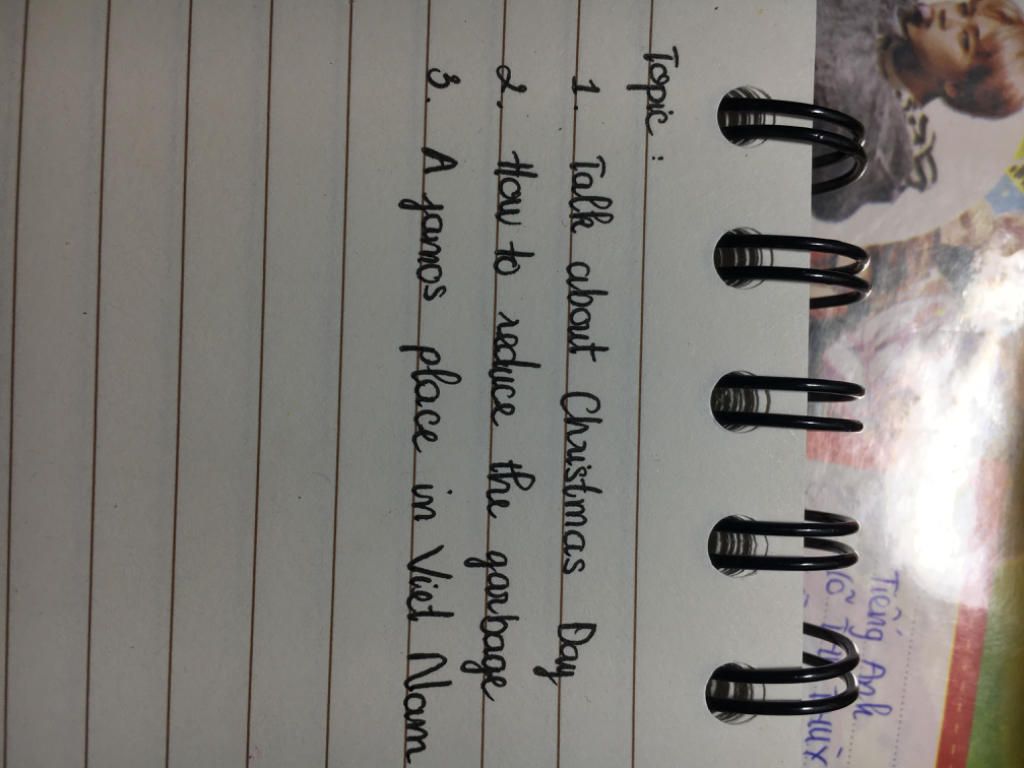 Topic :
1. Talk about Christmas Day
2. How to reduce the garbage
3. A famos place in Việt Nam
Tiếng Anh